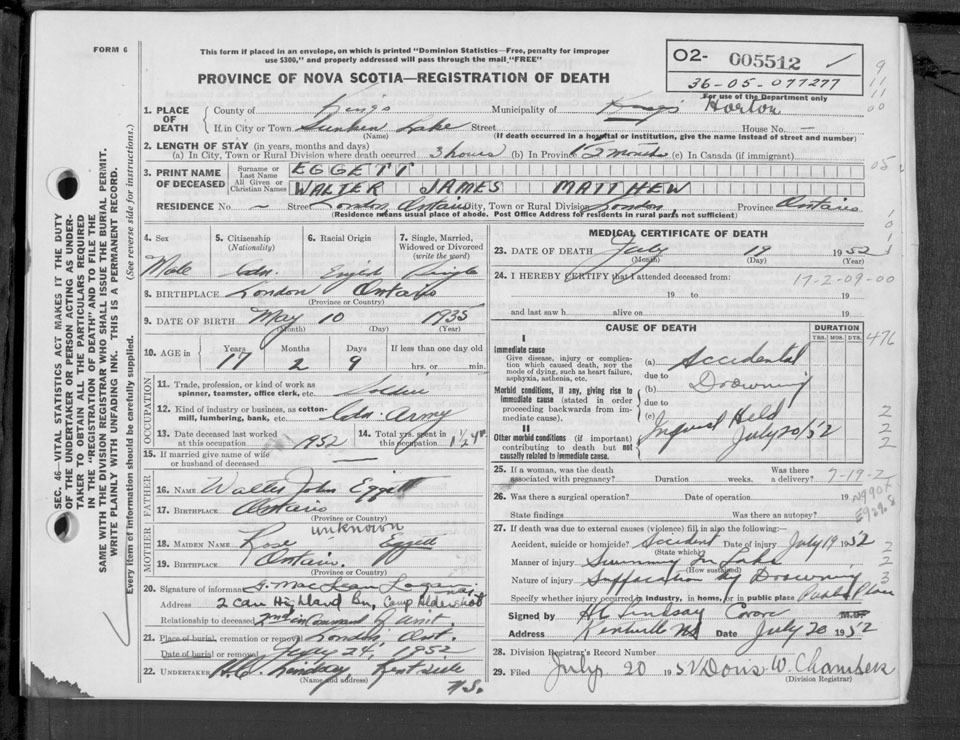 FORM 6
This form if placed in an envelope, on which is printed "Dominion Statistics—Free, penalty for improper
use $300," and properly addressed will pass through the mail "FREE"
PROVINCE OF NOVA SCOTIA—REGISTRATION OF DEATH
02- 005512
36-05-077277
For use of the Department only
1. PLACE OF DEATH
County of Kings Municipality of Kings Horton
If in City or Town Sunken Lake Street House No. —
(Name) (If death occurred in a hospital or institution, give the name instead of street and number)
2. LENGTH OF STAY (in years, months and days)
(a) In City, Town or Rural Division where death occurred 3 hours (b) In Province months (c) In Canada (if immigrant)
3. PRINT NAME OF DECEASED
Surname or Last Name EGGETT
All Given or Christian Names WALTER JAMES MATTHEW
RESIDENCE No. — Street London, Ontario City, Town or Rural Division London Province Ontario
(Residence means usual place of abode. Post Office Address for residents in rural parts not sufficient)
4. Sex
Male
5. Citizenship
(Nationality)
Cdn.
6. Racial Origin
English
7. Single, Married, Widowed or Divorced
(write the word)
Single
8. BIRTHPLACE London Ontario
(Province or Country)
9. DATE OF BIRTH May 10 1935
(Month) (Day) (Year)
10. AGE in Years Months Days If less than one day old
17 2 9 hrs. or min.
OCCUPATION
11. Trade, profession, or kind of work as
spinner, teamster, office clerk, etc. Soldier
12. Kind of industry or business, as cotton-
mill, lumbering, bank, etc. Cdn. Army
13. Date deceased last worked
at this occupation 1952
14. Total yrs. spent in
this occupation 1½ yr.
15. If married give name of wife
or husband of deceased —
FATHER
16. NAME Walter John Eggett
17. BIRTHPLACE Ontario
(Province or Country)
MOTHER
unknown
18. MAIDEN NAME Rose Eggett
19. BIRTHPLACE Ontario.
(Province or Country)
20. Signature of informant G. MacLean Logan
Address 2 Can Highland Bn, Camp Aldershot
Relationship to deceased 2nd in Command of Unit.
21. Place of burial, cremation or removal London, Ont.
Date of burial or removal July 24, 1952
22. UNDERTAKER H.C. Lindsay Kentville
(Name and address) N.S.
MEDICAL CERTIFICATE OF DEATH
23. DATE OF DEATH July 19 1952
(Month) (Day) (Year)
24. I HEREBY CERTIFY that I attended deceased from:
17-2-09-00
19 to 19
and last saw h alive on 19
CAUSE OF DEATH
DURATION
YRS. MOS. DYS.
476
I
Immediate cause
Give disease, injury or complica-
tion which caused death, not the
mode of dying, such as heart failure,
asphyxia, asthenia, etc.
(a) Accidental
due to Drowning
Morbid conditions, if any, giving rise to
immediate cause (stated in order
proceeding backwards from im-
mediate cause).
(b)
due to
(c) Inquest Held
July 20/52
II
Other morbid conditions (if important)
contributing to death but not
causally related to immediate cause.
25. If a woman, was the death Was there
associated with pregnancy? Duration weeks. a delivery? 7-19-2
26. Was there a surgical operation? Date of operation 19
State findings Was there an autopsy?
N990X
E929.8
27. If death was due to external causes (violence) fill in also the following:—
Accident, suicide or homicide? Accident Date of injury July 19 1952
(State which)
Manner of injury Swimming In Lake
(How sustained)
Nature of injury Suffocation by Drowning
Specify whether injury occurred in industry, in home, or in public place Public Place
Signed by H.C. Lindsay Coroner M.D.
Address Kentville NS Date July 20 1952
28. Division Registrar's Record Number
29. Filed July 20 1952 Doris W. Chambers
(Division Registrar)
SEC. 46—VITAL STATISTICS ACT MAKES IT THE DUTY
OF THE UNDERTAKER OR PERSON ACTING AS UNDER-
TAKER TO OBTAIN ALL THE PARTICULARS REQUIRED
IN THE "REGISTRATION OF DEATH" AND TO FILE THE
SAME WITH THE DIVISION REGISTRAR WHO SHALL ISSUE THE BURIAL PERMIT.
WRITE PLAINLY WITH UNFADING INK. THIS IS A PERMANENT RECORD.
Every item of information should be carefully supplied. (See reverse side for instructions.)